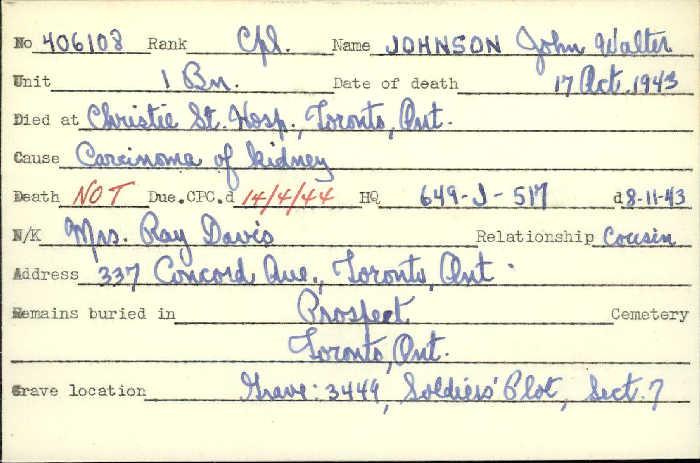 No 406108 Rank Cpl. Name JOHNSON John Walter
Unit 1 Bn. Date of death 17 Oct. 1943
Died at Christie St. Hosp., Toronto, Ont.
Cause Carcinoma of kidney
Death NOT Due.CPC.d 14/4/44 HQ 649-J-517 d 8-11-43
N/K Mrs. Ray Davis Relationship Cousin
Address 337 Concord Ave., Toronto, Ont.
Remains buried in Prospect Cemetery
Toronto, Ont.
Grave location Grave: 3449, Soldiers' Plot, Sect. 7